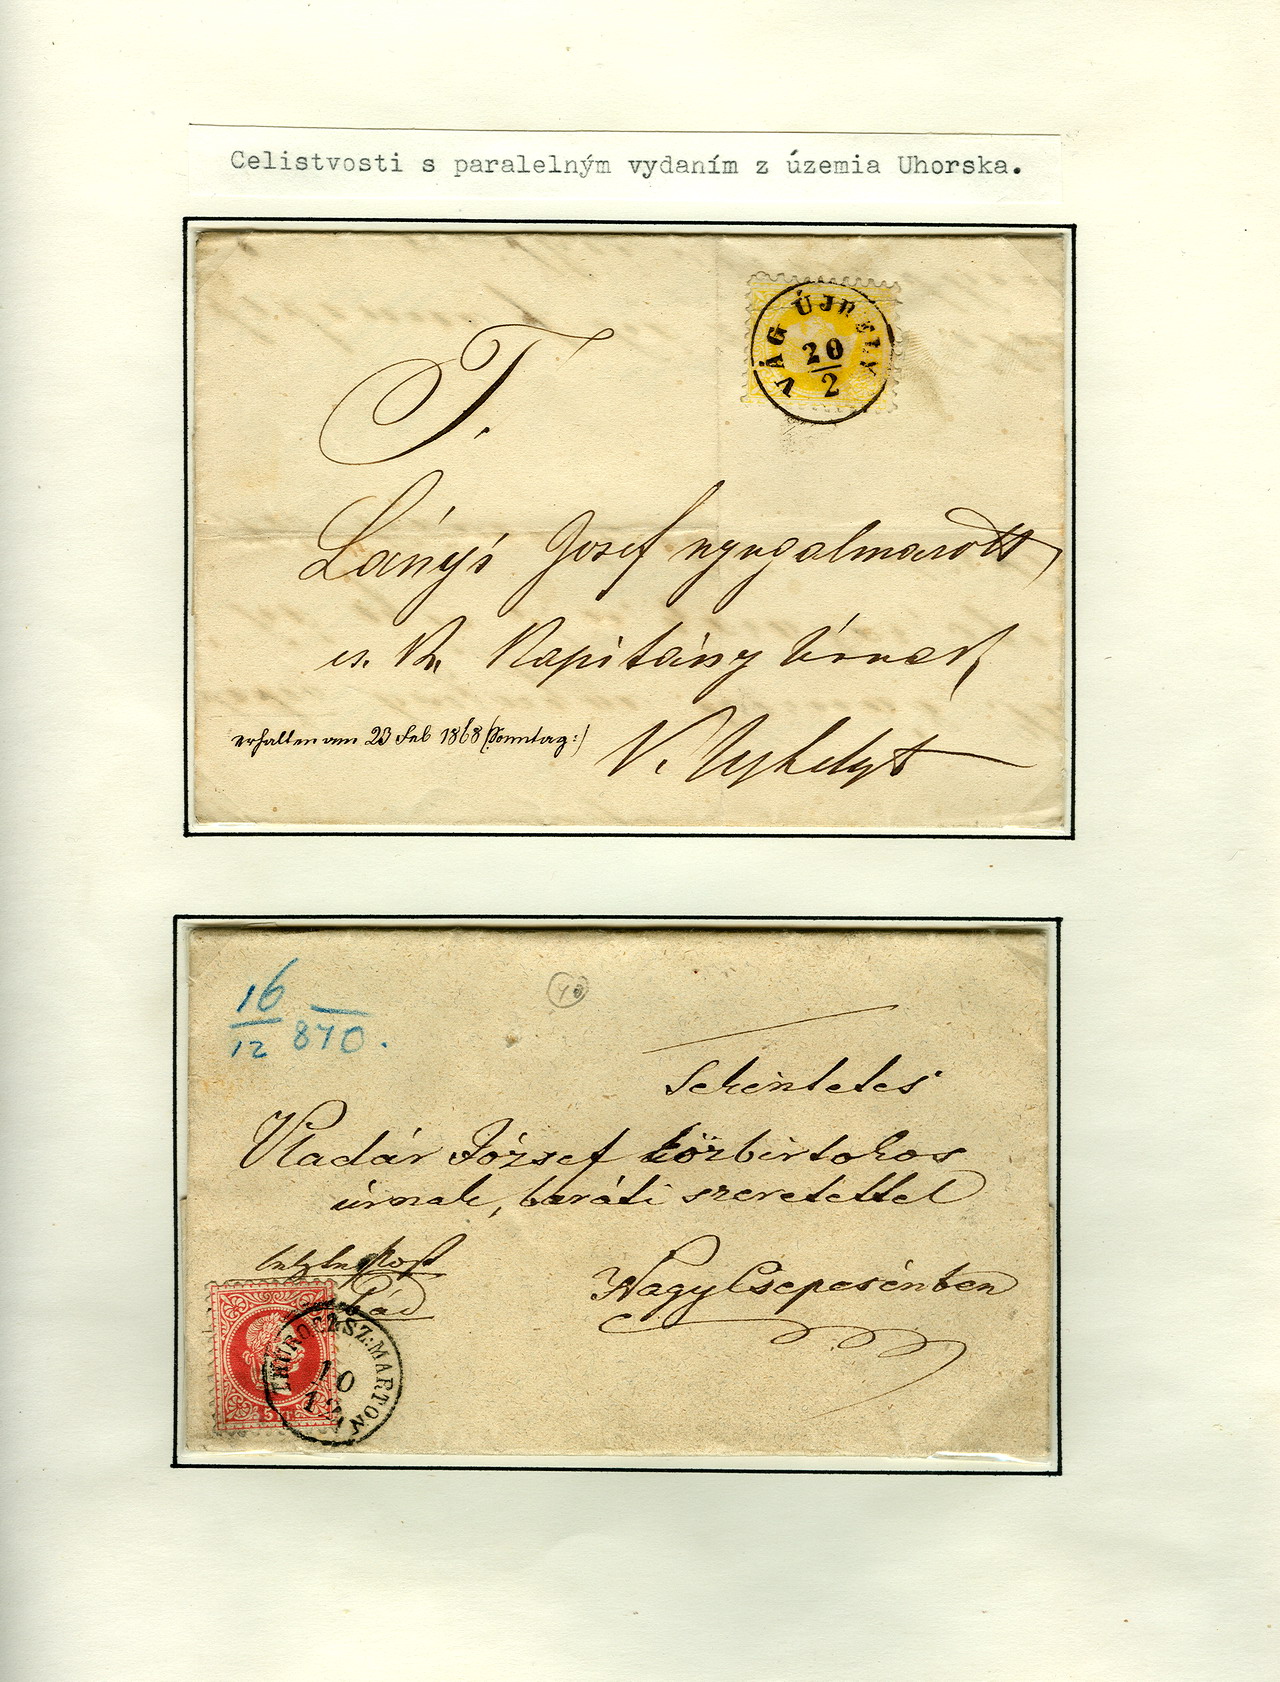 Celistvosti s paralelným vydaním z územia Uhorska.
VÁG ÚJHELY
20
2
T.
Lányi Josef nyugalmazott
cs. k. Kapitány Úrnak
erhalten am 23 Feb 1868 (Sonntag:)
V. Ujhelyt
16
12 870.
Tekintetes
Vladár József közbirtokos
úrnak, baráti szeretettel
letzte Post
Nagy Csepcsénben
THUROCZ SZ: MARTON
10
12
5 kr